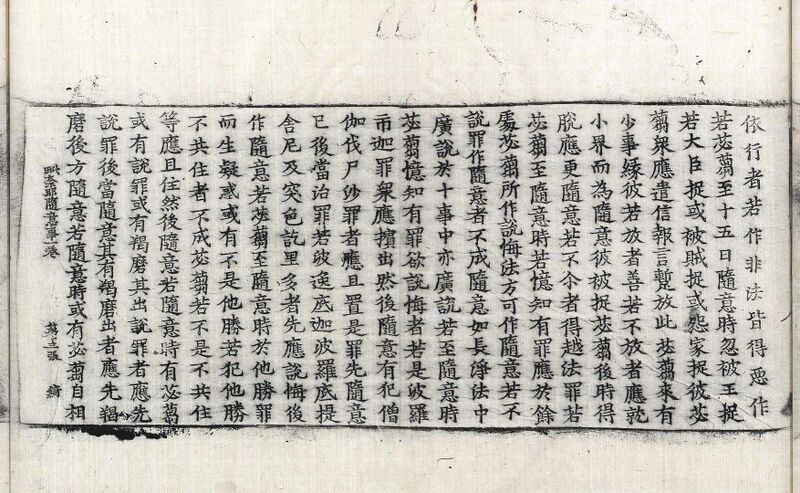 依行者若作非法皆得惡作
若苾蒭至十五日隨意時忽被王捉
若大臣捉或被賊捉或怨家捉彼苾
蒭衆應遣信報言暫放此苾蒭來有
少事緣彼若放者善若不放者應就
小界而為隨意彼被捉苾蒭後時得
脫應更隨意若不尒者得越法罪若
苾蒭至隨意時若憶知有罪應於餘
處苾蒭所作說悔法方可作隨意若不
說罪作隨意者不成隨意如長淨法中
廣說於十事中亦廣說若至隨意時
苾蒭憶知有罪欲說悔者若是波羅
市迦罪衆應擯出然後隨意有犯僧
伽伐尸沙罪者應且置是罪先隨意
已後當治罪若波逸底迦波羅底提
舍尼及突色訖里多者先應說悔後
作隨意若苾蒭至隨意時於他勝罪
而生疑惑或有不是他勝若犯他勝
不共住者不成苾蒭若不是不共住
等應且住然後隨意若隨意時有苾蒭
或有說罪或有羯磨其出說罪者應先
說罪後當隨意其有羯磨出者應先羯
磨後方隨意若隨意時或有苾蒭自相
毗奈耶隨意事一卷 張